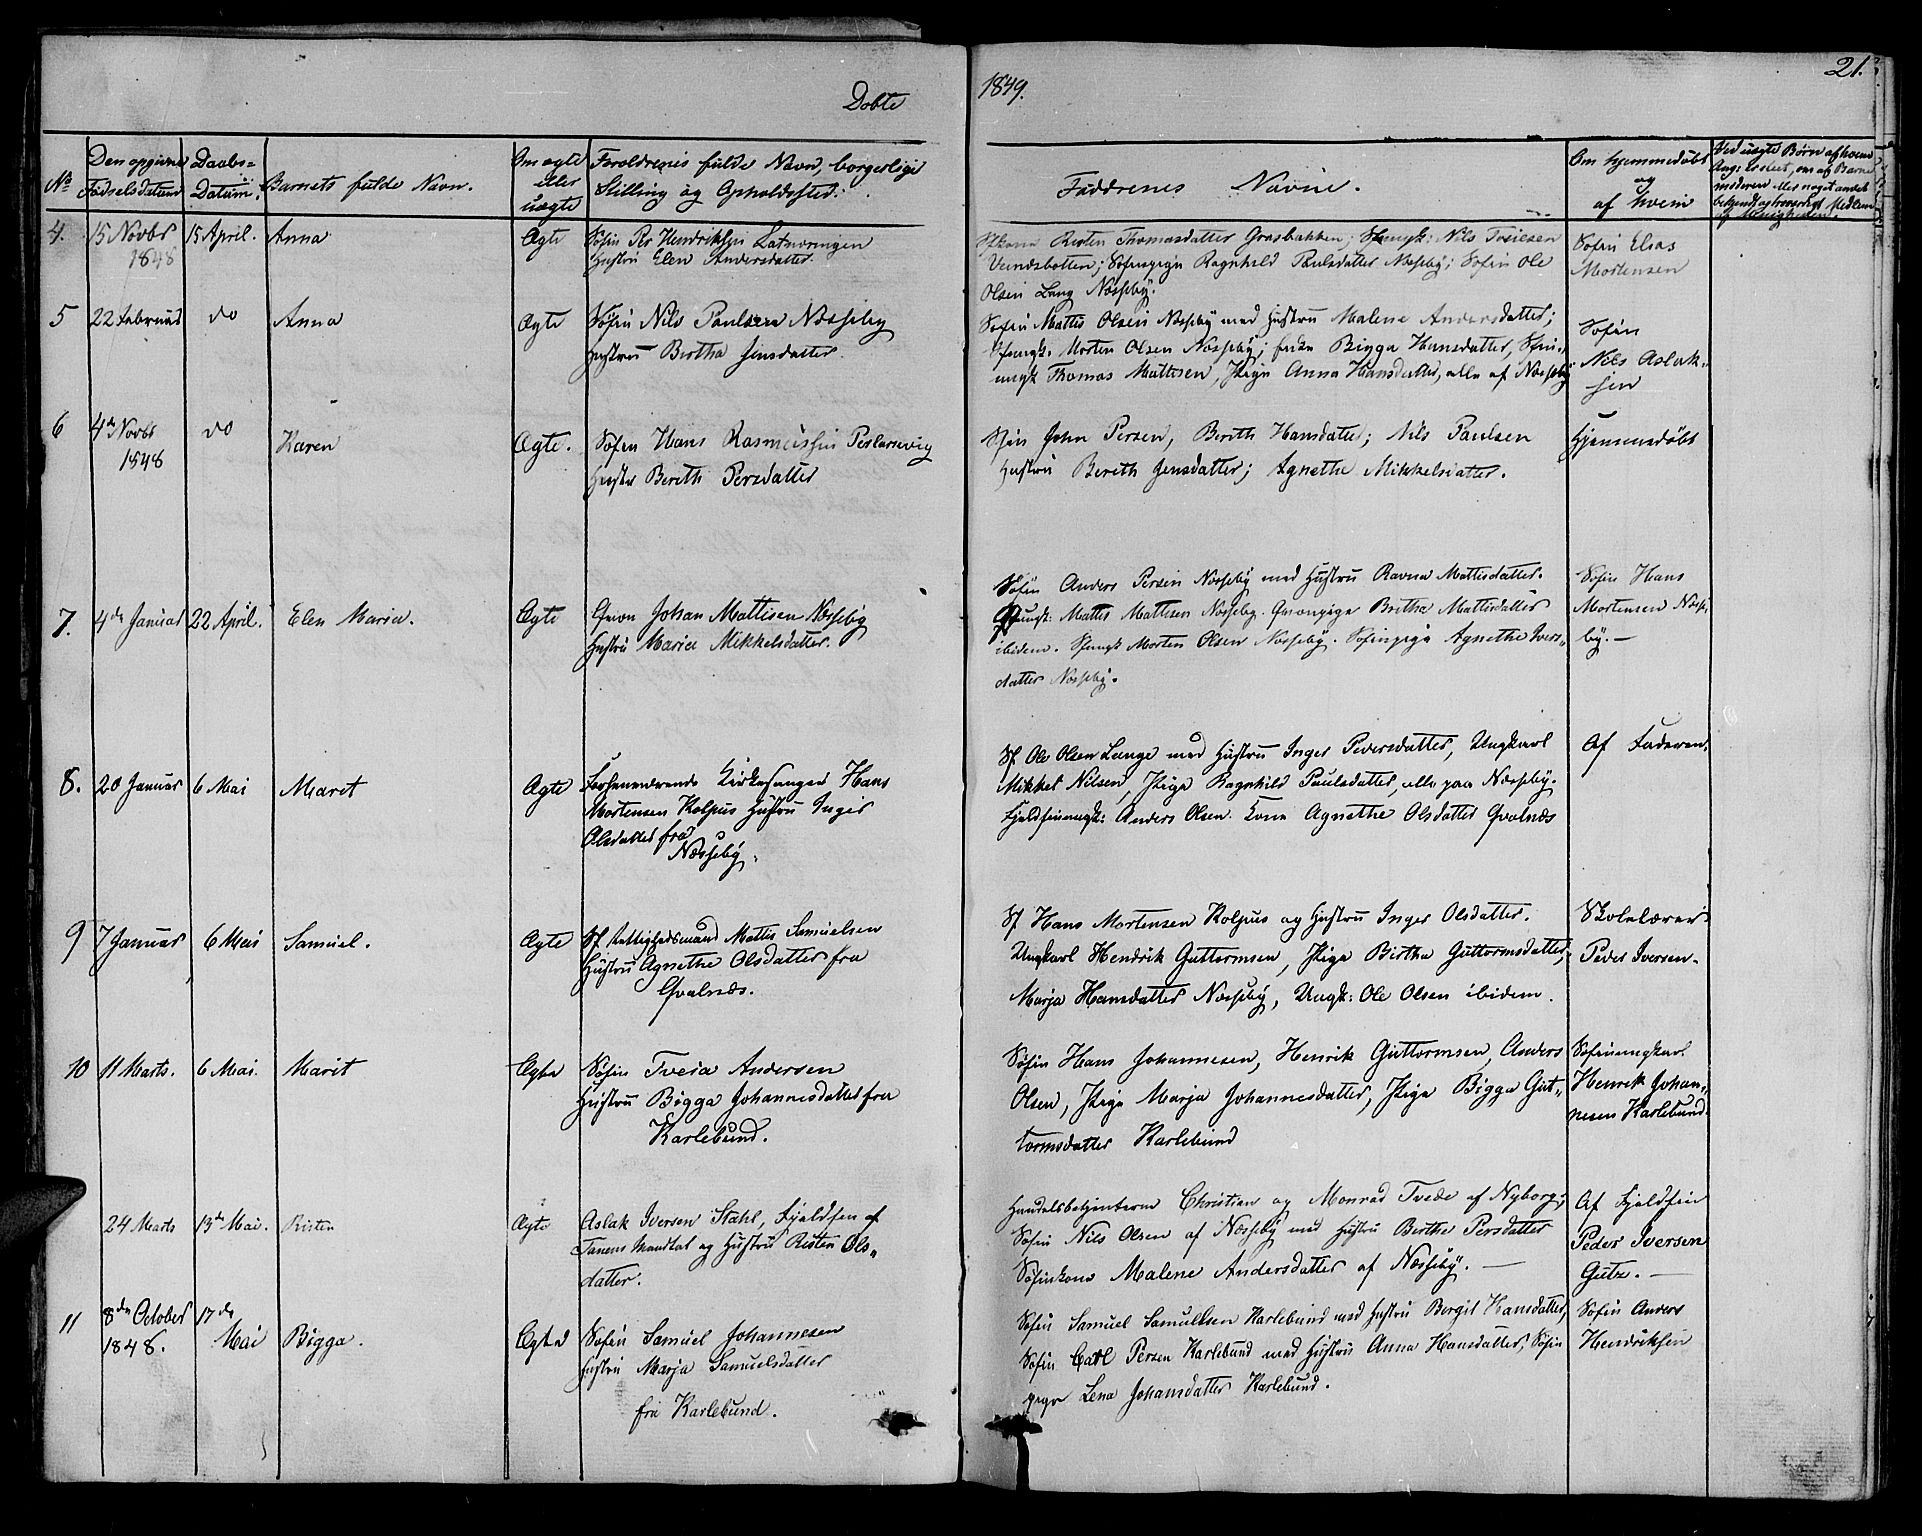 Døbte 1849. 21.
No
Den opgivne Fødselsdatum
Daabs-Datum.
Barnets fulde Navn.
Om ægte eller uægte
Foræld­renes fulde Navn, borgerlige Stilling og Opholdssted.
Faddrenes Navne.
Om hjemmedøbt og af hvem
Ved uægte Børn af hvem
4. 15 Novbr 1848 15 April. Anna Ægte
Søfin Per Hendriksen Latnæringen
Hustru Elen Andersdatter.
Sfkone Risten Thomasdatter Græsbakken; Sfungk: Nils Tveiesen
Veinesbotten; Søfinpige Ragnhild Paulsdatter Næsseby; Søfin Ole
Olsen Lang Næsseby.
Søfin Elias
Mortensen
5 22 Februar do Anna Ægte
Søfin Nils Paulsen Næsseby
Hustru Birtha Jensdatter.
Søfin Mattis Olsen Næsseby med Hustru Malene Andersdatter;
Sfungk. Morten Olsen Næsseby; Enke Bigga Hansdatter, Sfin-
ungk Thomas Mattesen, Pige Anna Hansdatter, alle af Næsseby
Søfin
Nils Aslak-
sen
6 4de Novbr 1848 do Karen Ægte.
Søfin Hans Rasmussen
Hustru Berith Persdatter
Sfin John Persen, Berith Hansdatter; Nils Paulsen
Hustru Bereth Jensdatter; Agnethe Mikkelsdatter.
Hjemmedøbt
7. 4de Januar 22 April. Elen Maria. Ægte
Qvæn Johan Mattisen Næsseby
Hustru Maria Mikkelsdatter.
Søfin Anders Persen Næsseby med Hustru Ravna Mattisdatter.
Qvungk: Mattis Mattisen Næsseby. Qvænpige Britha Mattisdatter
ibidem. Sfungk Morten Olsen Næsseby. Søfinpige Agnethe Ivers-
datter Næsseby.
Søfin Hans
Mortensen Næsse-
by. —
8. 20 Januar 6 Mai Maret Ægte
Forhenværende Kirkesanger Hans
Mortensen Kolpus Hustru Inger
Olsdatter fra
Næsseby.
Sf Ole Olsen Lange med Hustru Inger Pedersdatter, Ungkarl
Mikkel Nilsen, Pige Ragnhild Paulsdatter, alle paa Næsseby.
Fjeldfinungk: Anders Olsen. Kone Agnethe Olsdatter Qvalnæs
Af Faderen.
9 7 Januar 6 Mai Samuel. Ægte
Sf Rettighedsmand Mattis Samuelsen
Hustru Agnethe Olsdatter fra
Qvalnæs.
Sf Hans Mortensen Kolpus og Hustru Inger Olsdatter.
Ungkarl Hendrik Guttormsen, Pige Birtha Guttormsdatter,
Marja Hansdatter Næsseby, Ungk: Ole Olsen ibidem.
Skolelærer
Peder Iversen.
10 11 Marts. 6 Mai. Marit Ægte
Søfin Tveia Andersen
Hustru Bigga Johannesdatter fra
Karlebund.
Søfin Hans Johannesen, Henrik Guttormsen, Anders
Olsen, Pige Marja Johannesdatter, Pige Bigga Gut-
tormsdatter Karlebund
Søfinungkarl
Henrik Johan-
nesen Karlebund.
24 Marts 13de Mai. Risten Ægte
Aslak Iversen Stahl, Fjeldfin af
Tanens Mandtal og Hustru Risten Ols-
datter.
Handelsbetjenterne Christian og Monrad Tvede af Nyborg;
Søfin Nils Olsen af Næsseby med Hustru Berthe Persdatter
Søfinkone Malene Andersdatter af Næsseby. —
Af Fjeldfin
Peder Iversen
Gutz. —
11 8de October 1848. 17de Mai Bigga. Ægte
Søfin Samuel Johannesen
Hustru Marja Samuelsdatter
fra Karlebund.
Søfin Samuel Samuelsen Karlebund med Hustru Bergit Hansdatter,
Søfin Carl Persen Karlebund med Hustru Anna Hansdatter, Søfin
pige Lena Johansdatter Karlebund.
Søfin Anders
Hendriksen